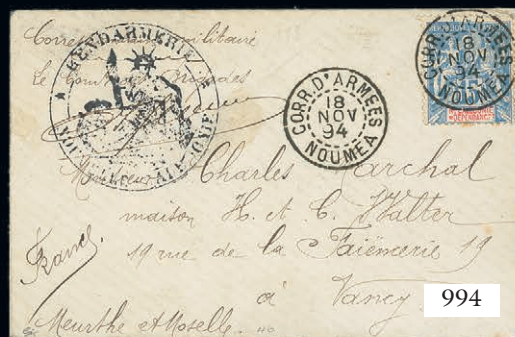 Correspondance militaire
Le Commandt Brigades
GENDARMERIE
NOUVELLE CALEDONIE
CORR. D'ARMEES
18
NOV
94
NOUMEA
CORR. D'ARMEES
18
NOV
94
NOUMEA
DEPENDANCES
Monsieur Charles Marchal
maison H. et C. Walter
19 rue de la Faïencerie 19
à Nancy
France
Meurthe et Moselle
994